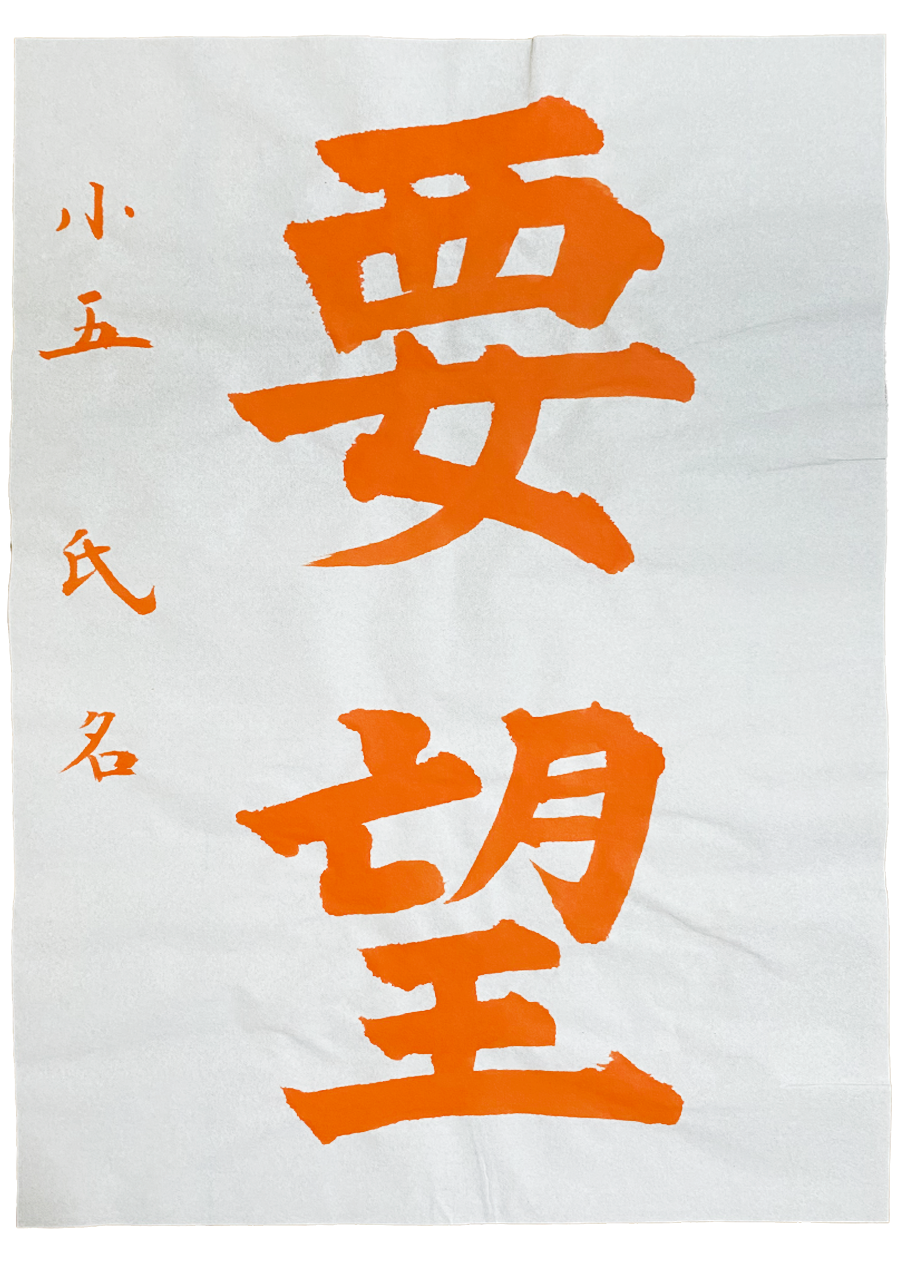 要望
小五 氏名